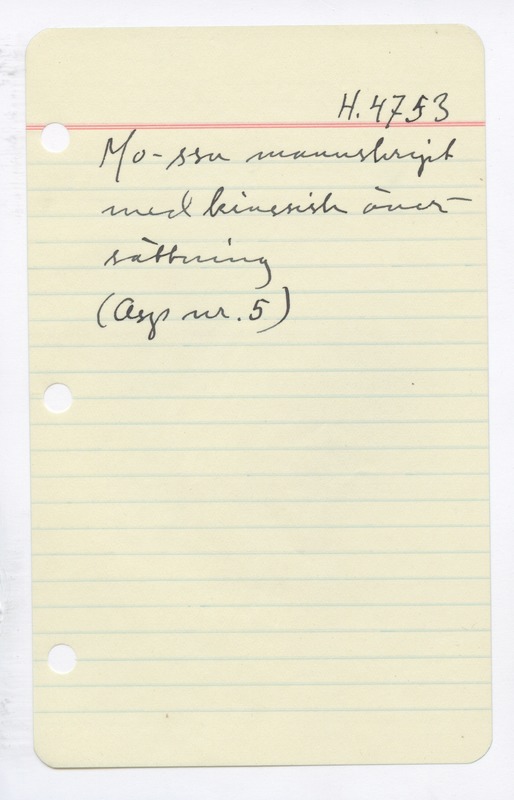 H. 4753
Mo-ssu manuskript
med kinesisk över-
sättning
(Asp nr. 5)